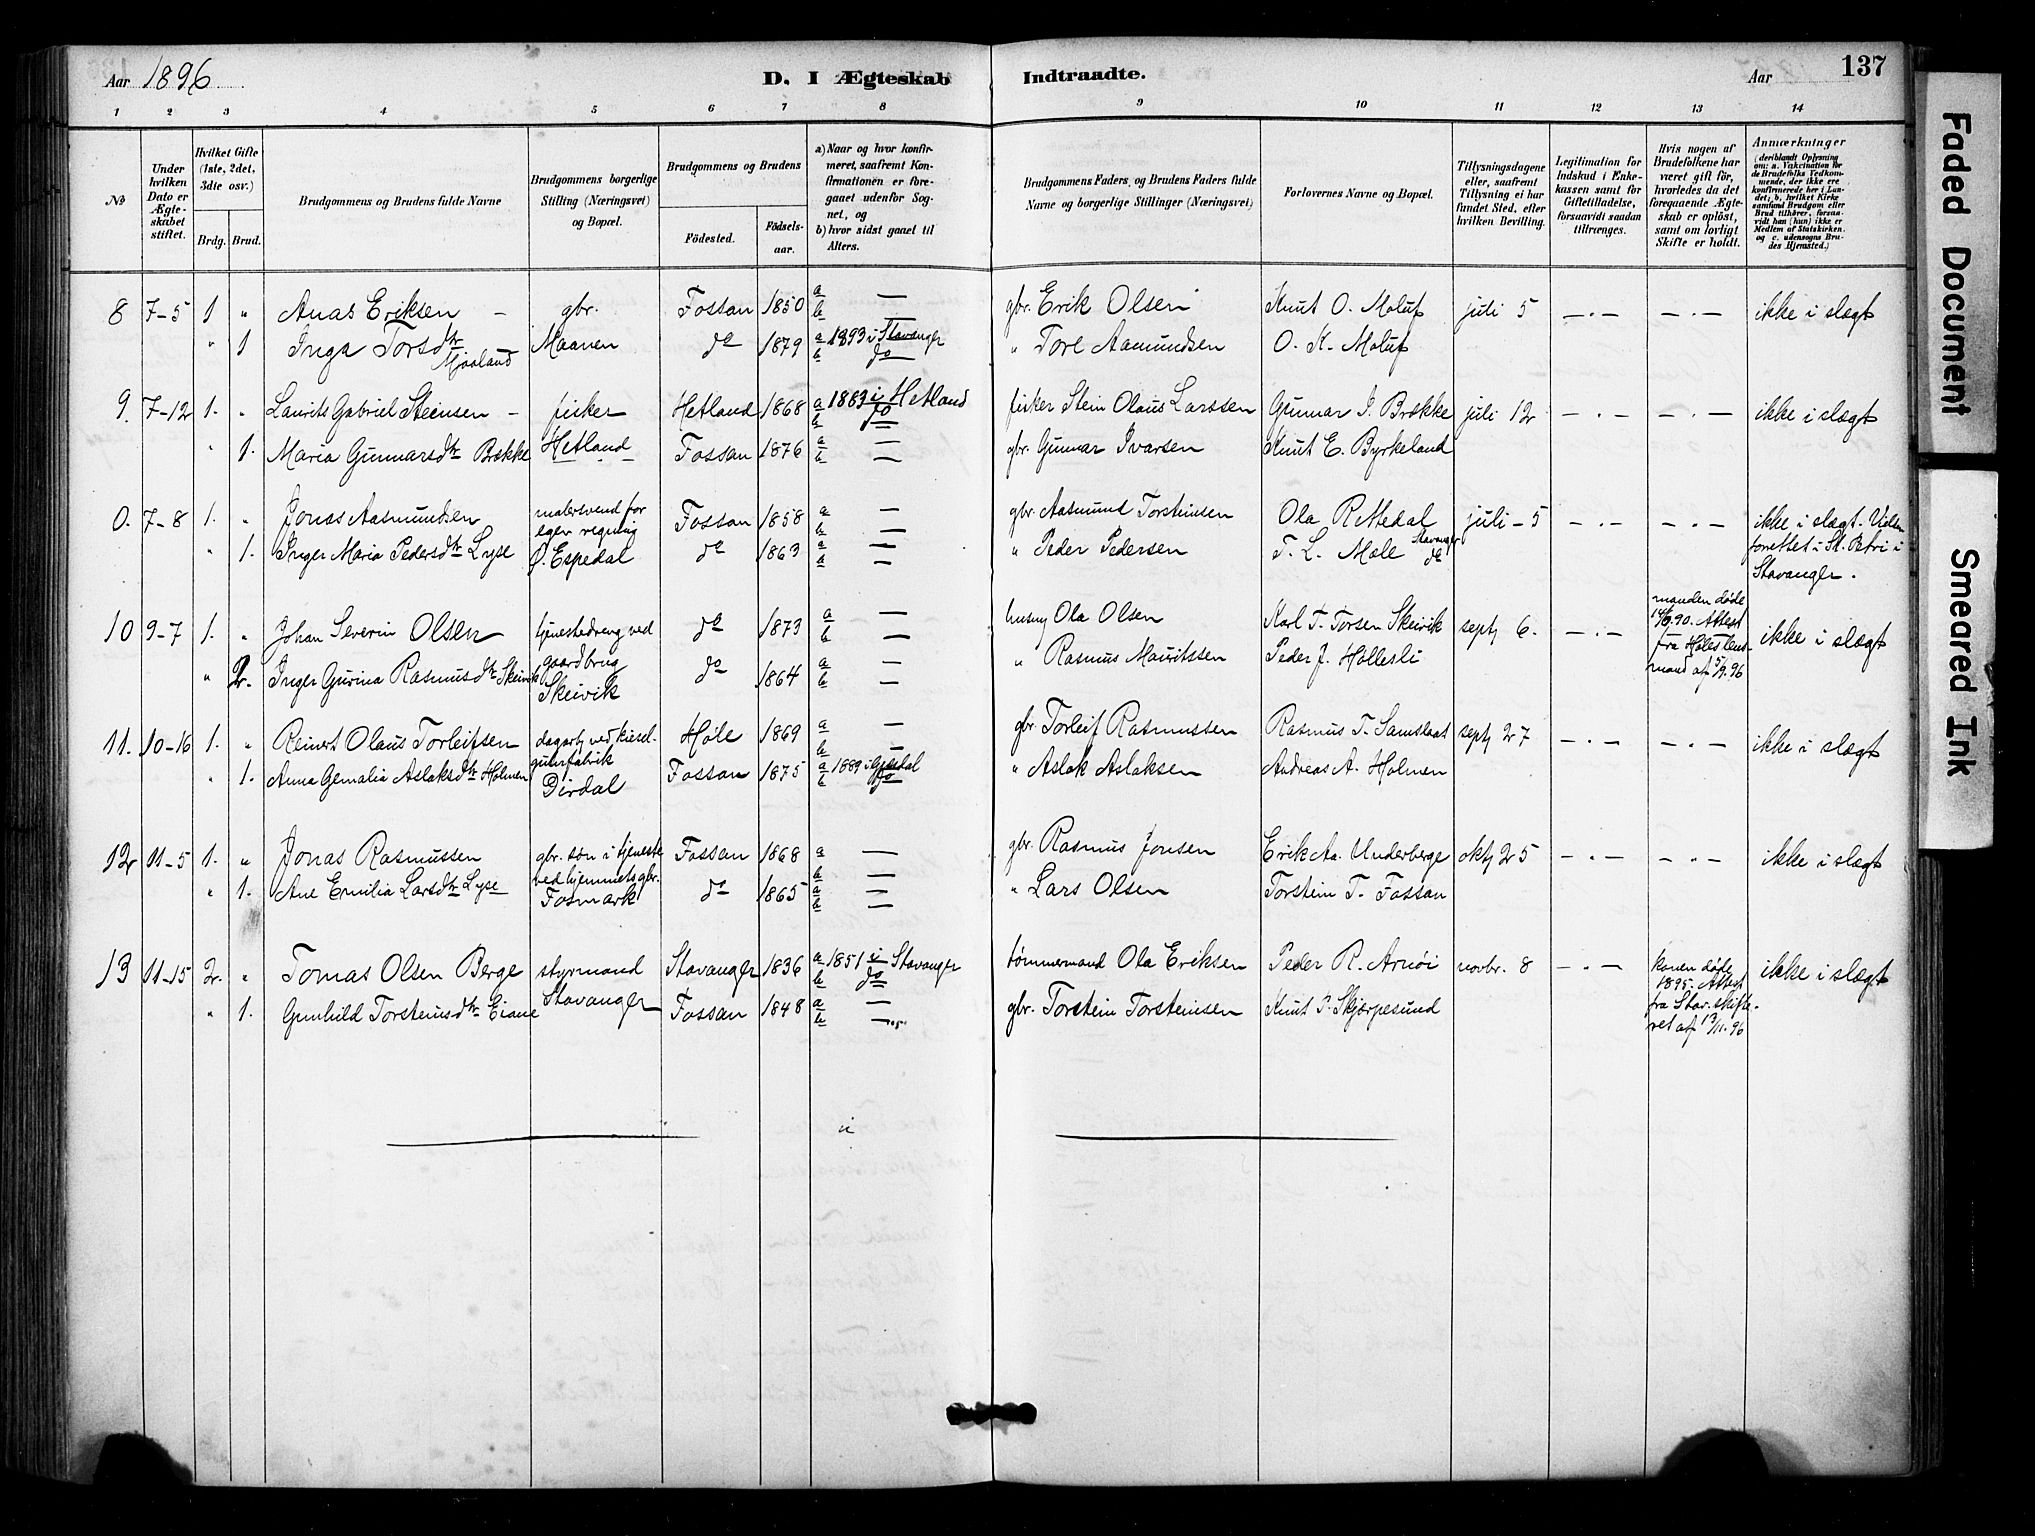 Aar 1896
D. I Ægteskab Indtraadte.
Aar 137
1 2 3 4 5 6 7 8 9 10 11 12 13 14
No
Under hvilken Dato er Ægteskabet stiftet.
Hvilket Gifte (1ste, 2det, 3die osv.)
Brdg. Brud.
Brudgommens og Brudens fulde Navne
Brudgommens borgerlige Stilling (Næringsvei) og Bopæl.
Brudgommens og Brudens
Fødested. Fødselsaar.
a) Naar og hvor konfirmeret, saafremt Konfirmationen er foregaaet udenfor Sognet, og
b) hvor sidst gaaet til Alters.
Brudgommens Faders, og Brudens Faders fulde Navne og borgerlige Stillinger (Næringsvei)
Forlovernes Navne og Bopæl.
Tillysningsdagene eller, saafremt Tillysning ei har fundet Sted, efter hvilken Bevilling.
Legitimation for Indskud i Enkekassen samt for Giftetilladelse, forsaavidt saadan tiltrænges.
Hvis nogen af Brudefolkene har været gift før, hvorledes da det foregaaende Ægteskab er opløst, samt om lovligt Skifte er holdt.
Anmærkninger
(deriblandt Oplysning om: a. Vakcination for de Brudefolks Vedkommende, der ikke ere konfirmerede her i Landet; b. hvilket Kirkesamfund Brudgom eller Brud tilhører, forsaavidt han (hun) ikke er Medlem af Statskirken. og c. udensogns Brudes Hjemsted.)
8 7-5 1 " Anas Eriksen - gbr. Fossan 1850 a — b — gbr. Erik Olsen Knut O. Moluf juli 5 —.— —.— ikke i slægt
" 1 Inga Torsdtr Mjøsland Maanen do 1879 a 1893 i Stavanger b do " Tore Aamundsen O. K. Moluf
9. 7-12 1. " Laurits Gabriel Steinsen - fisker Hetland 1868 a 1883 i Hetland b do fisker Stein Olaus Larssen Gunnar I. Brække juli 12 —.— —.— ikke i slægt
" 1. Maria Gunnarsdtr Brække Hetland Fossan 1876 a — b — gbr. Gunnar Ivarsen Knut E. Byrkeland
0. 7-8 1. " Jonas Aasmundsen malersvend for egen regning Fossan 1858 a — b — gbr. Aasmund Torsteinsen Ola Rettedal juli - 5 —.— —.— ikke i slægt. Vielsen
" 1. Inger Maria Pedersdtr Lyse Ø. Espedal do 1863 a — b — " Peder Pedersen T. L. Mæle Stavanger do forrettet i St. Petri i
Stavanger.
10 9-7 1. " Johan Severin Olsen tjenestedreng ved gaardbrug do 1873 a — b — husm Ola Olsen Karl T. Torsen Skeivik septj 6. —.— manden døde
" 2. Inger Gurina Rasmusdtr Skeivik Skeivik do 1864 a — b — " Rasmus Mauritssen Peder J. Hollesli
90. Attest
fra Høles lens-
mand af 5/9.96
ikke i slægt
11. 10-16 1. " Reinert Olaus Torleifsen dagarb ved kiesel-
gurfabrik Høle 1869 a — b — gbr Torleif Rasmussen Rasmus T. Samslaat septj 27 —.— —.— ikke i slægt
" 1. Anna Gemalia Aslaksdtr Holmen Dirdal Fossan 1875 a 1889 i Gjesdal b do " Aslak Aslaksen Andreas A. Holmen
12 11-5 1. " Jonas Rasmussen gbr. søn i tjeneste
ved hjemmets gbr. Fossan 1868 a — b — gbr. Rasmus Jonsen Erik Aa. Underberge oktj 25 —.— —.— ikke i slægt
" 1. Ane Emilia Larsdtr Lyse Fosmark do 1865 a — b — " Lars Olsen Torstein T. Fossan
13 11-15 2. " Tomas Olsen Berge styrmand Stavanger 1836 a 1851 i Stavanger b do tømmermand Ola Eriksen Peder R. Arnøi novbr. 8 —.— konen døde
" 1. Gunhild Torsteinsdtr Eiane Stavanger Fossan 1848 a — b — gbr. Torstein Torsteinsen Knut P. Skjørpesund
1895. Attest
fra Stav. skifte-
ret af 13/11.96
ikke i slægt
Faded Document
Smeared Ink